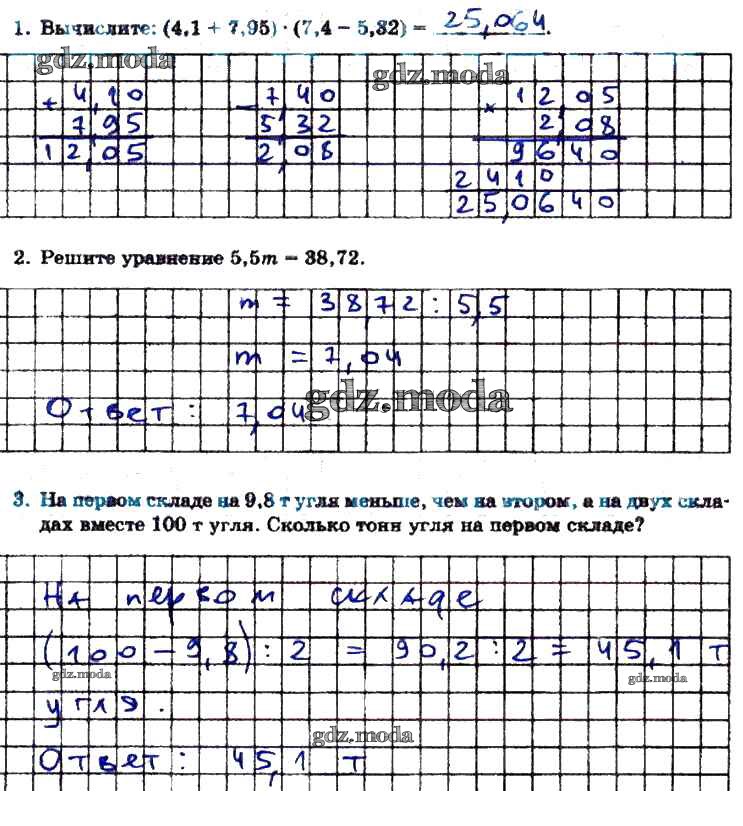 1. Вычислите: (4,1 + 7,95) · (7,4 − 5,32) = 25,064.
gdz.moda
gdz.moda
+ 4,10
7,95
12,05
− 7,40
5,32
2,08
× 12,05
2,08
9640
2410
250640
2. Решите уравнение 5,5m = 38,72.
m = 38,72 : 5,5
m = 7,04
Ответ: 7,04
gdz.moda
3. На первом складе на 9,8 т угля меньше, чем на втором, а на двух скла-
дах вместе 100 т угля. Сколько тонн угля на первом складе?
На первом складе
(100 − 9,8) : 2 = 90,2 : 2 = 45,1 т
gdz.moda
gdz.moda
угля.
gdz.moda
Ответ: 45,1 т